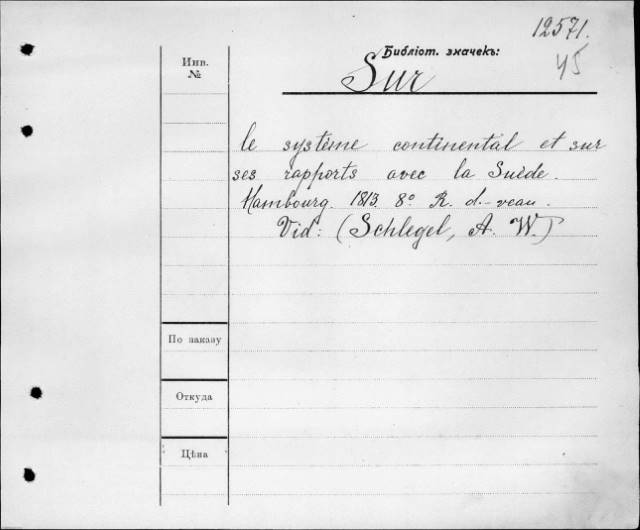 12571.
Библіот. значекъ:
45
Инв.
№
Sur
le système continental et sur
ses rapports avec la Suède.
Hambourg. 1813. 8º R. d.-veau.
Vid: (Schlegel, A. W.)
По заказу
Откуда
Цѣна